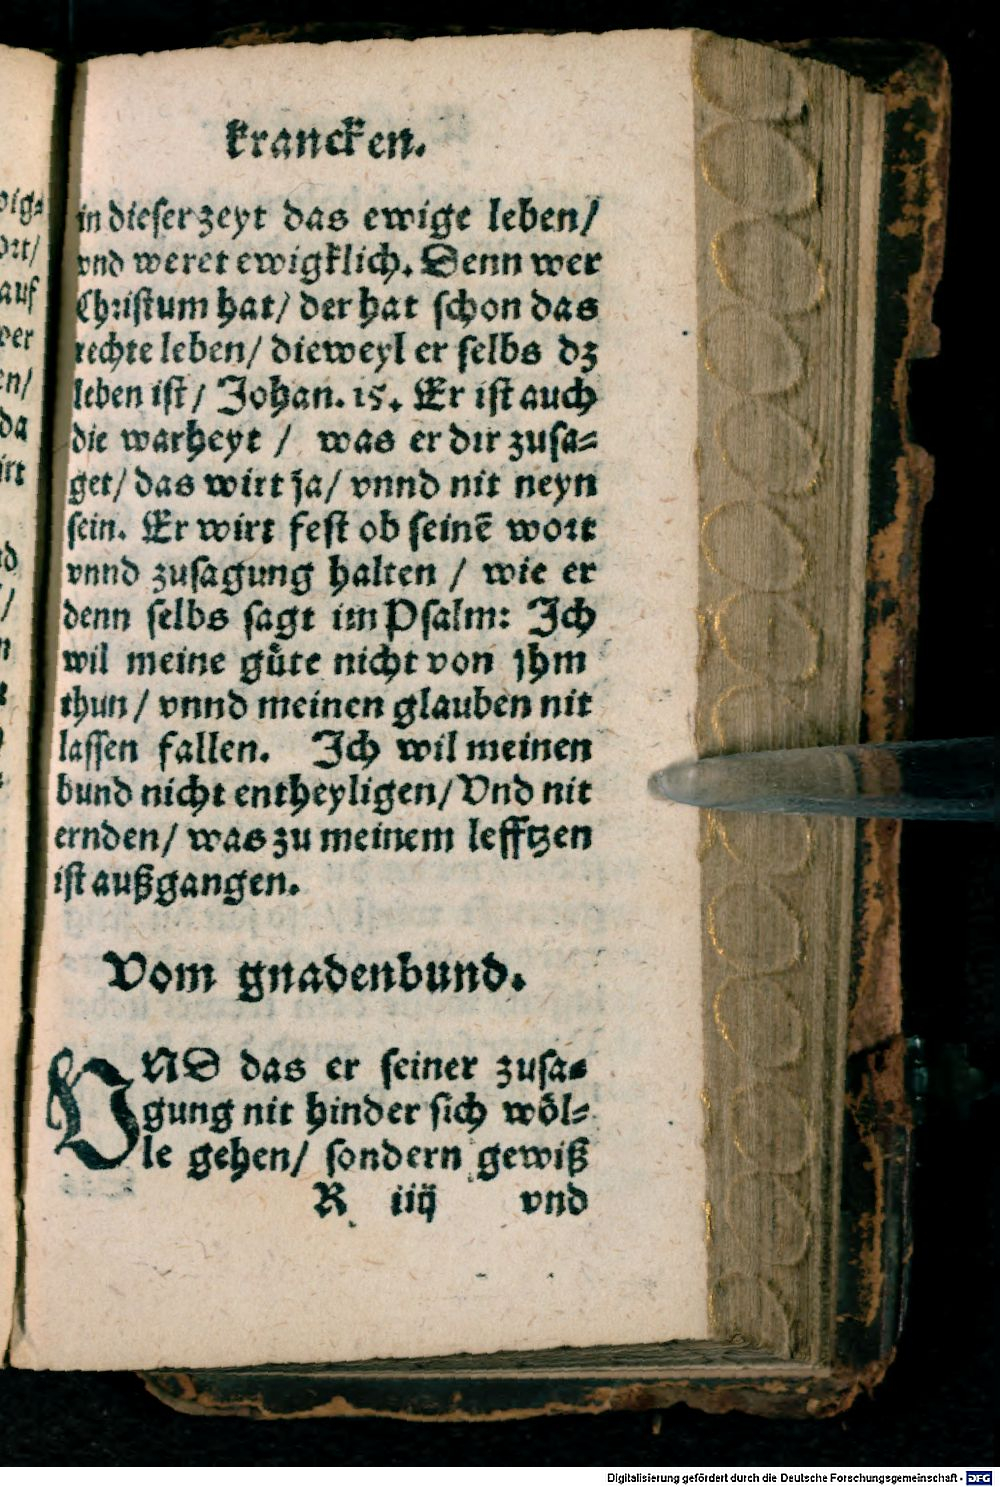 krancken.
in dieser zeyt das ewige leben/
vnd weret ewigklich. Denn wer
Christum hat/ der hat schon das
rechte leben/ dieweyl er selbs dz
leben ist/ Johan. 15. Er ist auch
die warheyt / was er dir zusa=
get/ das wirt ja/ vnnd nit neyn
sein. Er wirt fest ob seinē wort
vnnd zusagung halten / wie er
denn selbs sagt im Psalm: Ich
wil meine guͤte nicht von jhm
thun/ vnnd meinen glauben nit
lassen fallen. Ich wil meinen
bund nicht entheyligen/ Vnd nit
ernden/ was zu meinem lefftzen
ist außgangen.
Vom gnadenbund.
VND das er seiner zusa=
gung nit hinder sich wöl=
le gehen/ sondern gewiß
R iiij vnd
Digitalisierung gefördert durch die Deutsche Forschungsgemeinschaft - DFG